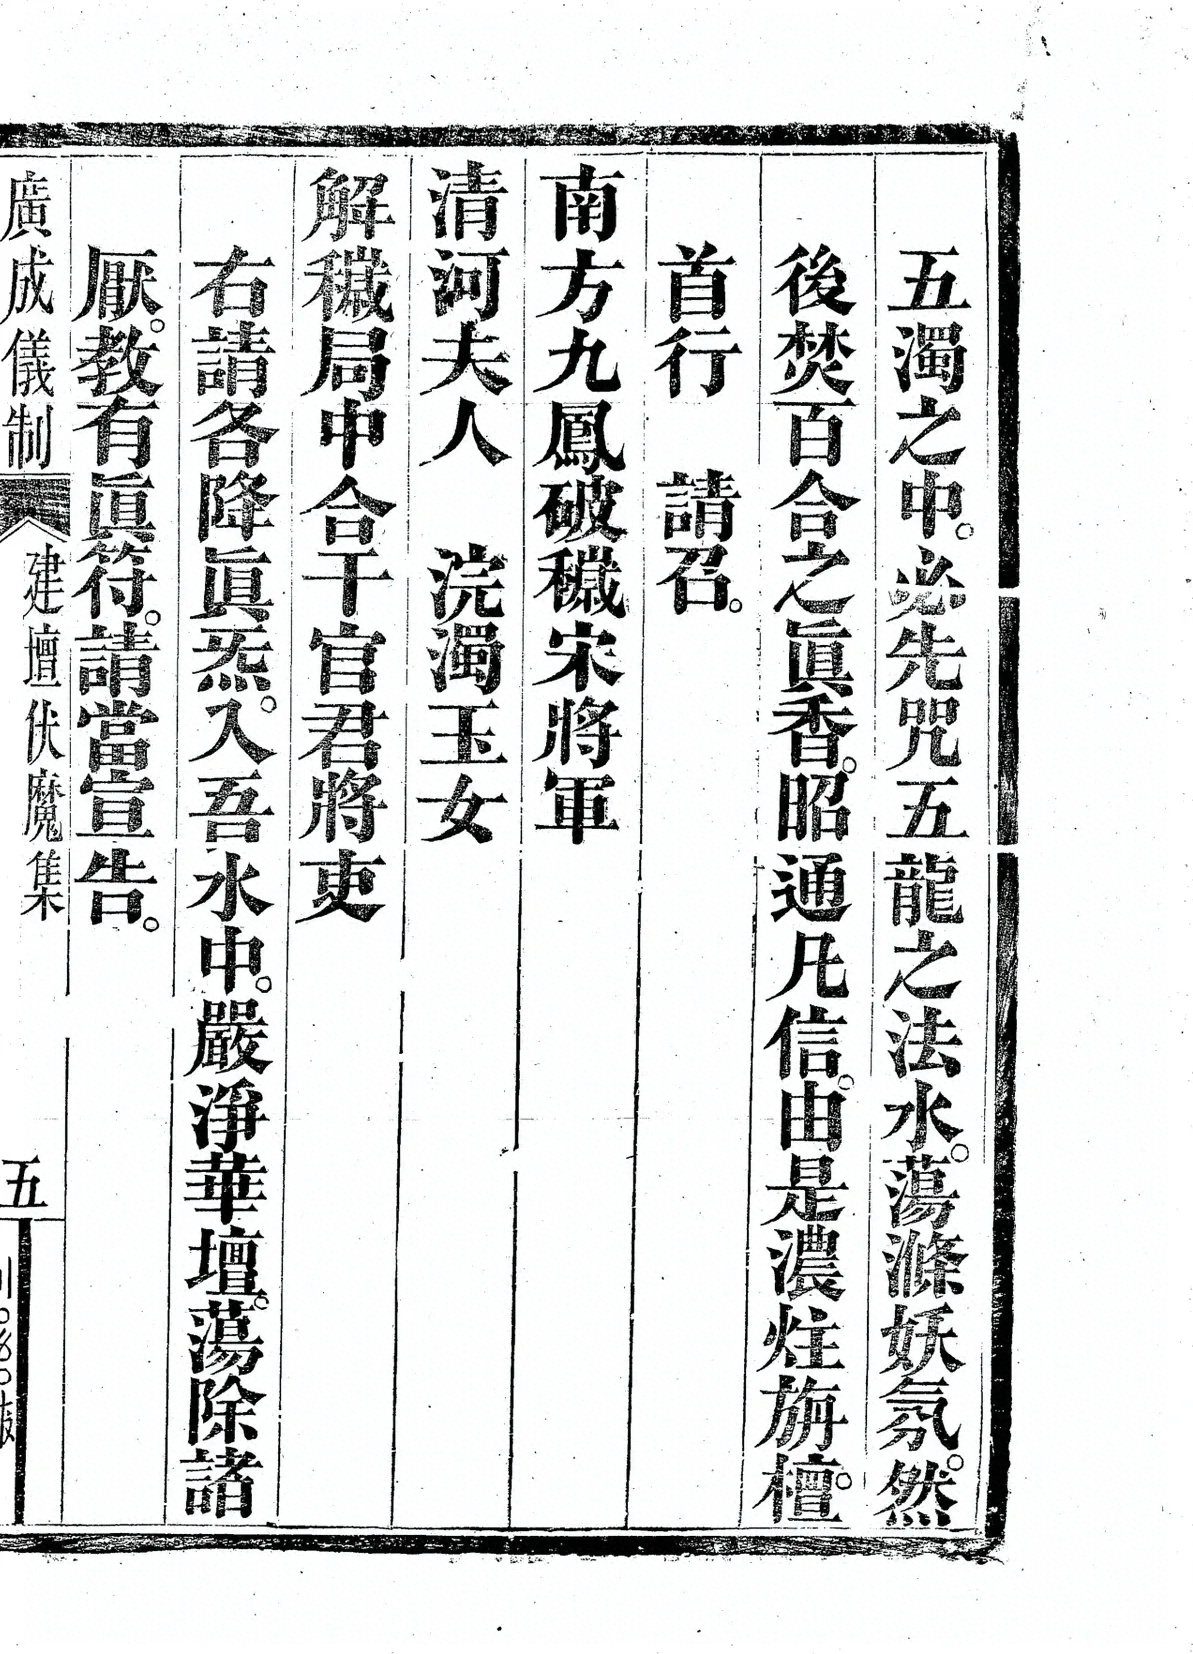 五濁之中。必先咒五龍之法水。蕩滌妖氛。然
後焚百合之眞香。昭通凡信。由是濃炷旃檀。
首行　請召。
南方九鳳破穢宋將軍
清河夫人　浣濁玉女
解穢局中合干官君將吏
右請各降眞炁。入吾水中。嚴淨華壇。蕩除諸
厭。教有眞符。請當宣告。
廣成儀制　建壇伏魔集　五